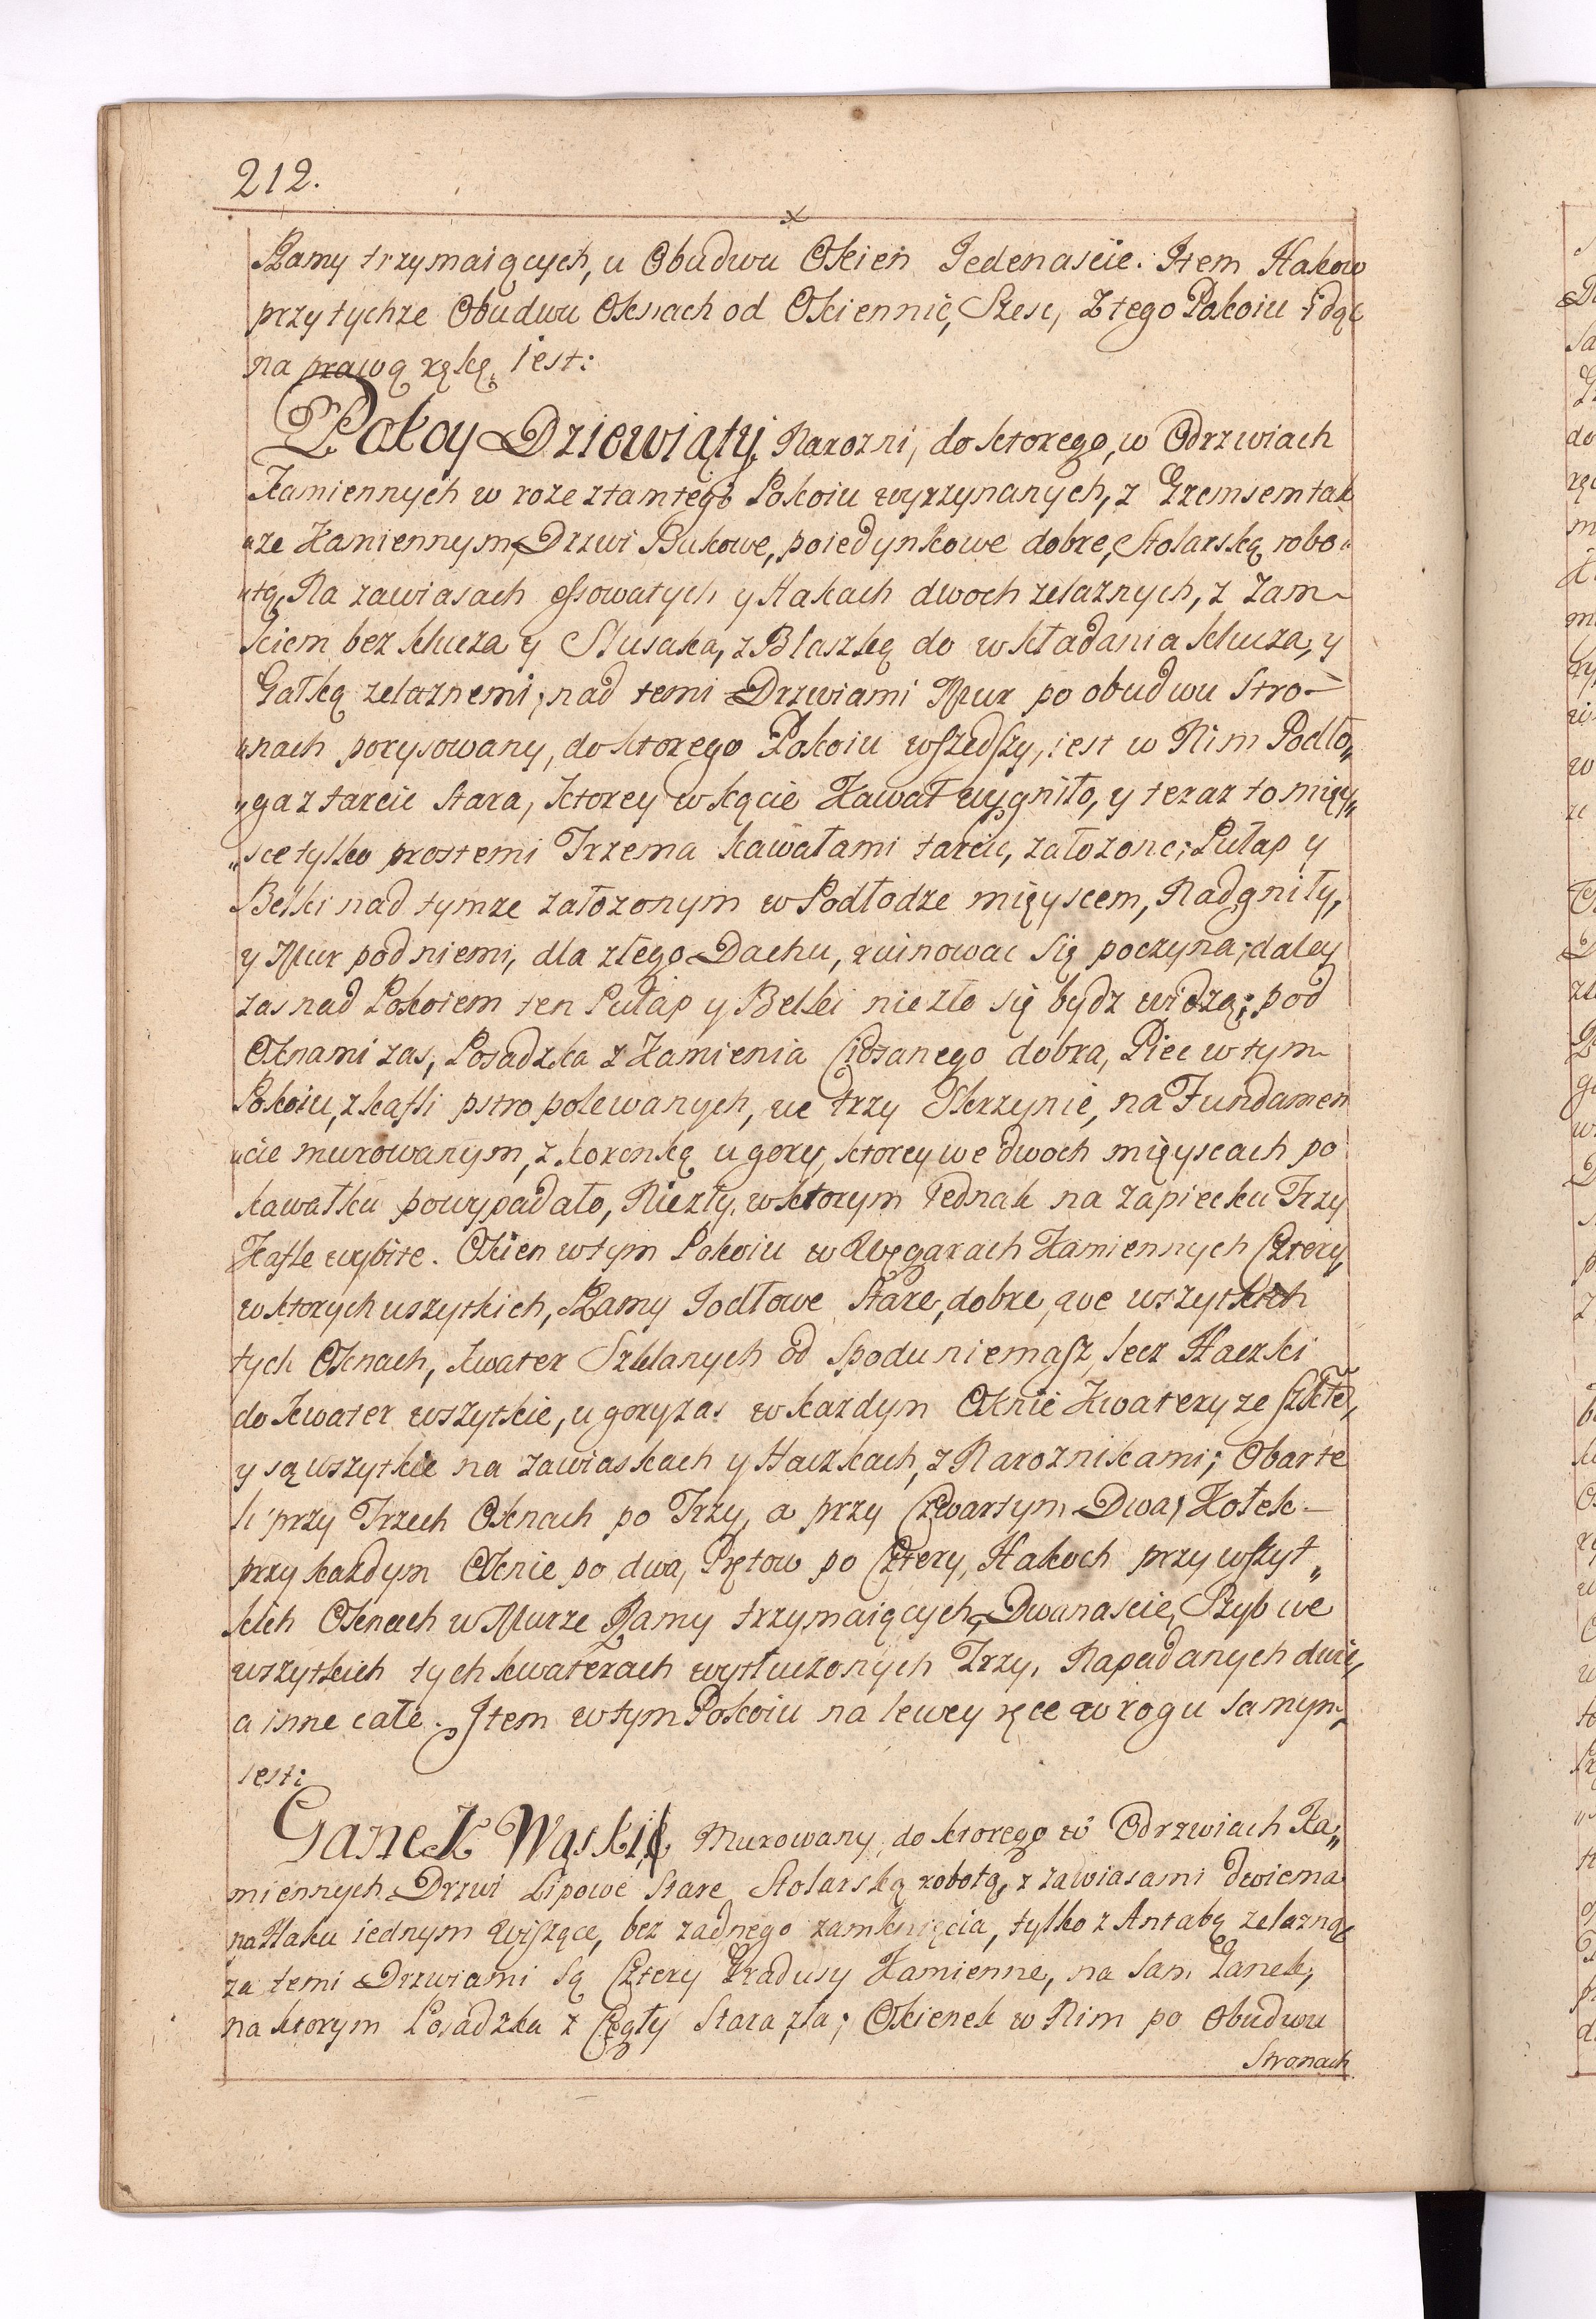 212.
Ramy trzymaiących, u Obudwu Okien Jedenaście. Item Hakow
przy tychże Obudwu Oknach od Okiennic, Szesc, Z tego Pokoiu idąc
na prawą ręką, iest:
Pokoy Dziewiąty, Narozni, do ktorego, w Odrzwiach
Kamiennych w roze z tamtego Pokoiu wyrzynanych, z Gzemsem tak
„ze Kamiennym, Drzwi Bukowe, poiedynkowe dobre, Stolarską robo„
„tą, Na zawiasach essowatych y Hakach dwoch zelaznych, z Zam-
kiem bez klucza y Slusaka, z Blaszką do wkładania klucza, y
Gałką zelaznemi, nad temi Drzwiami Mur po obudwu Stro-
„nach porysowany, do ktorego Pokoiu wszedszy, iest w Nim Podło„
„ga z tarcic stara, ktorey w kącie Kawał wygniło, y teraz to miey„
„sce tylko prostemi Trzema kawałami tarcic, założone; Pułap y
Belki nad tymze załozonym w Podłodze mieyscem, Nadgniły,
y Mur pod niemi, dla złego Dachu, ruinowac się poczyna; daley
zas nad Pokoiem ten Pułap y Belki niezłe się bydz widzą; pod
Oknami zas, Posadzka z Kamienia Ciosanego dobra, Piec w tym
Pokoiu, z kafli pstro polewanych, we trzy Skrzynie, na Fundamen
„cie murowanym, z koronką u gory, ktorey we dwoch mieyscach po
kawałku powypadało, Niezły, w ktorym iednak na zapiecku Trzy
Kafle wybite. Okien w tym Pokoiu w Węgarach Kamiennych Cztery,
w ktorych wszytkich, Ramy Jodłowe Stare, dobre, we wszytkich
tych Oknach, kwater Szklanych od spodu niemasz, lecz Haczki
do kwater wszytkie, u gory zas w kazdym Oknie Kwatery ze szkłe,
y są wszytkie na zawiaskach y Haczkach, z Naroznikami; Obarte
k przy Trzech Oknach po Trzy, a przy Czwartym Dwa, Kołek -
przy kazdym Oknie po dwa, Prętow po Cztery, Hakoch przy wszyt„
kich Oknach w Murze Ramy trzymaiących, Dwanascie, Szyb we
wszytkich tych kwaterach wytłuczonych Trzy, Napadanych dwie,
a inne całe. Item w tym Pokoiu na lewey ręce w rogu samym
iest:
Ganek Wąski, Murowany, do ktorego w Odrzwiach Ka„
miennych Drzwi Lipowe Stare Stolarską robotą, z zawiasami dwiema
na Haku iednym wiszące, bez zadnego zamknięcia, tylko z Antabą zelazną
za temi Drzwiami są Cztery Gradusy Kamienne, na sam Ganek,
na ktorym Posadzka z Cegły Stara, zła; Okienek w Nim po Obudwu
Stronach